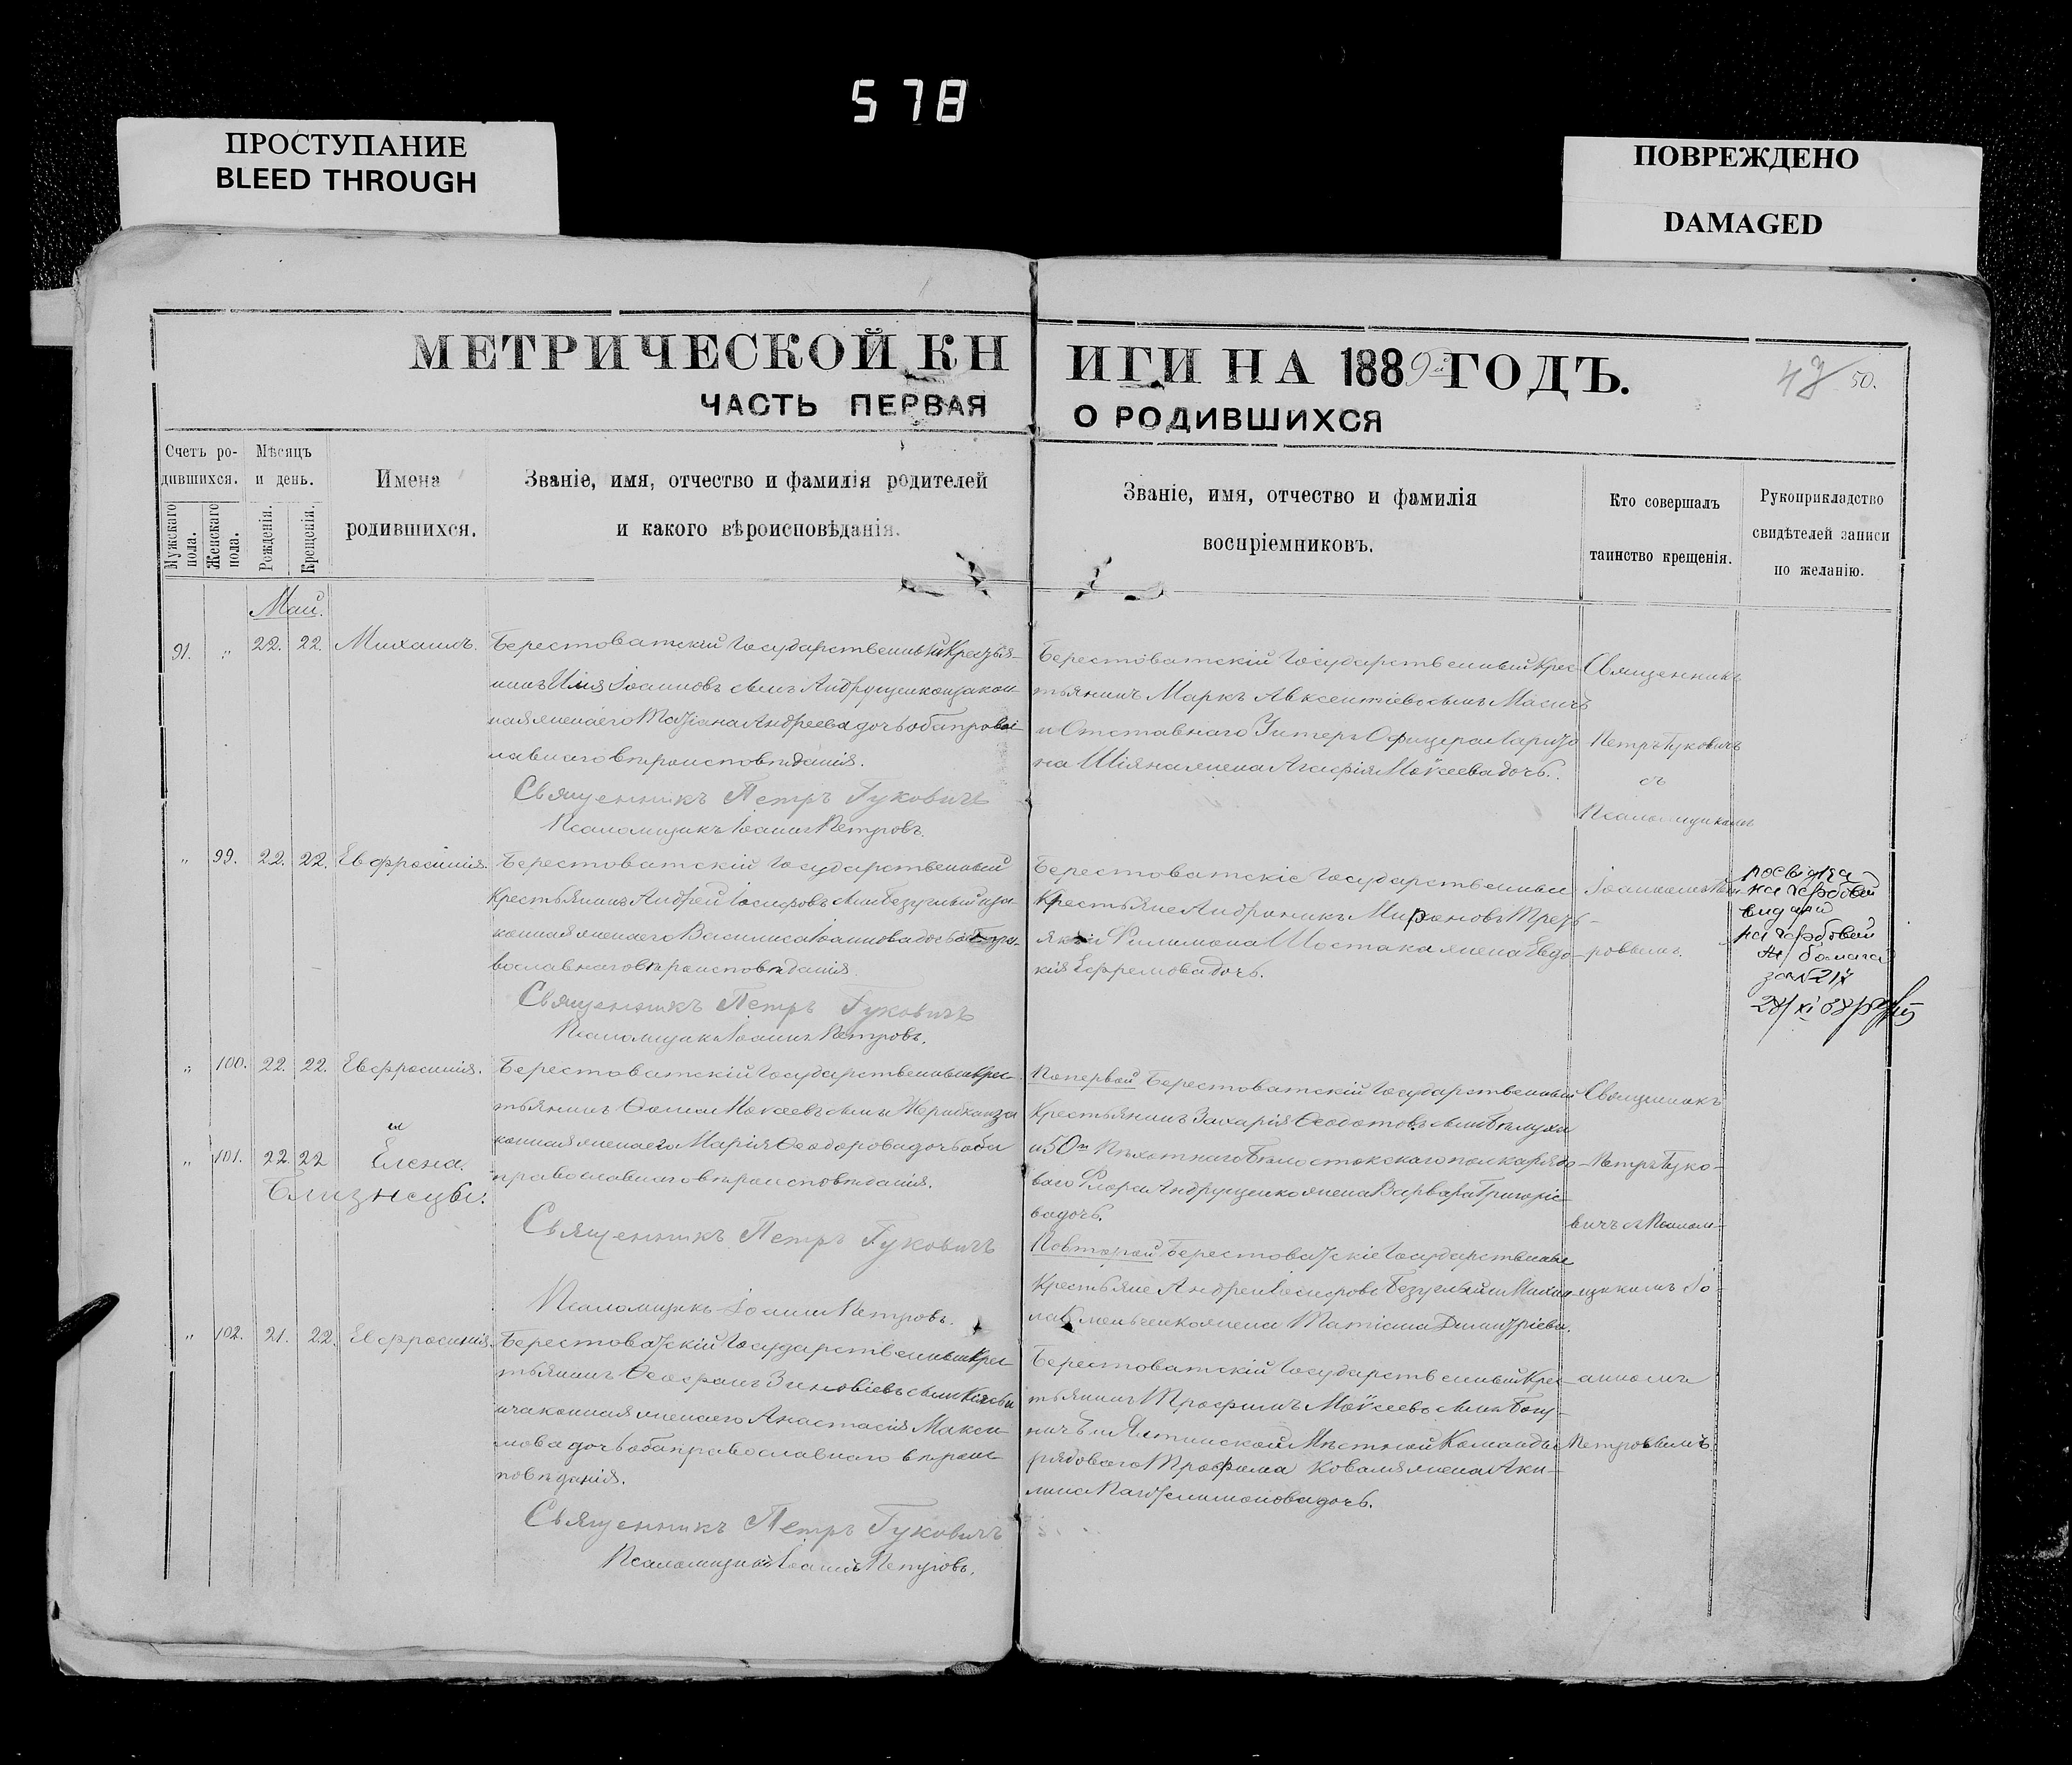 578
ПРОСТУПАНИЕ
BLEED THROUGH
ПОВРЕЖДЕНО
DAMAGED
МЕТРИЧЕСКОЙ КНИГИ НА 1889й ГОДЪ.
50.
ЧАСТЬ ПЕРВАЯ О РОДИВШИХСЯ
Счетъ ро-
дившихся.
Мужскаго пола.
Женскаго пола.
Мѣсяцъ
и день.
Рожденія.
Крещенія.
Имена
родившихся.
Званіе, имя, отчество и фамилія родителей
и какого вѣроисповѣданія.
Званіе, имя, отчество и фамилія
воспріемниковъ.
Кто совершалъ
таинство крещенія.
Рукоприкладство
свидѣтелей записи
по желанію.
Май.
91. " 22. 22. Михаилъ.
Берестоватскій Государственный Крестья-
нинъ Илія Іоанновъ сынъ Андрущенко и закон-
ная жена его Татіана Андреева дочь оба право-
славнаго вѣроисповѣданія.
Священникъ Петръ Гуковичъ
Псаломщикъ Іоаннъ Петровъ.
Берестоватскій Государственный Крес-
тьянинъ Маркъ Авксентіевъ сынъ Масичъ
и Отставнаго Унтеръ Офицера Ларіо-
на Шіяна жена Агафія Моѵсеева дочь.
Священникъ
Петръ Гуковичъ
съ
Псаломщикомъ
" 99. 22. 22. Евфросинія.
Берестоватскій Государственный
Крестьянинъ Андрей Іосифовъ сынъ Безуглый и за-
конная жена его Василиса Іоаннова дочь оба пра-
вославнаго вѣроисповѣданія.
Священникъ Петръ Гуковичъ
Псаломщикъ Іоаннъ Петровъ.
Берестоватскіе Государственные
Крестьяне Андроникъ Мироновъ
Филимона Шостака жена Евдо-
кія Ефремова дочь.
Іоанномъ Пет-
ровымъ.
на гербовой
на гербовой
" 100. 22. 22. Евфросинія.
и
" 101. 22. 22 Елена.
Близнецы.
Берестоватскій Государственный Крес-
тьянинъ Ѳома Моѵсеевъ сынъ и за
конная жена его Марія Ѳеодорова дочь оба
православнаго вѣроисповѣданія.
Священникъ Петръ Гуковичъ
Псаломщикъ Іоаннъ Петровъ.
По первой Берестоватскій Государственный
Крестьянинъ Захарія Ѳеодотовъ сынъ
и 50го Пѣхотнаго Бѣлостокскаго полка рядо-
ваго Флора Андрущенко жена Варвара Григоріе-
ва дочь.
По второй Берестоватскіе Государственные
Крестьяне Андрей Іосифовъ Безуглый и Михаи-
ла жена Татіана Димитріева.
Священникъ
Петръ Гуко-
вичъ съ Псалом-
щикомъ Іо-
" 102. 21. 22. Евфросинія.
Берестоватскій Государственный Крес-
тьянинъ Ѳеофанъ Зиновіевъ сынъ
и законная жена его Анастасія Макси-
мова дочь оба православнаго вѣроис-
повѣданія.
Священникъ Петръ Гуковичъ
Псаломщикъ Іоаннъ Петровъ.
Берестоватскій Государственный Крес-
тьянинъ Трофимъ Моѵсеевъ сынъ
и Ялтинской Мѣстной Команды
рядоваго Трофима Коваля жена Аки-
лина Пантелимонова дочь.
анномъ
Петровымъ.